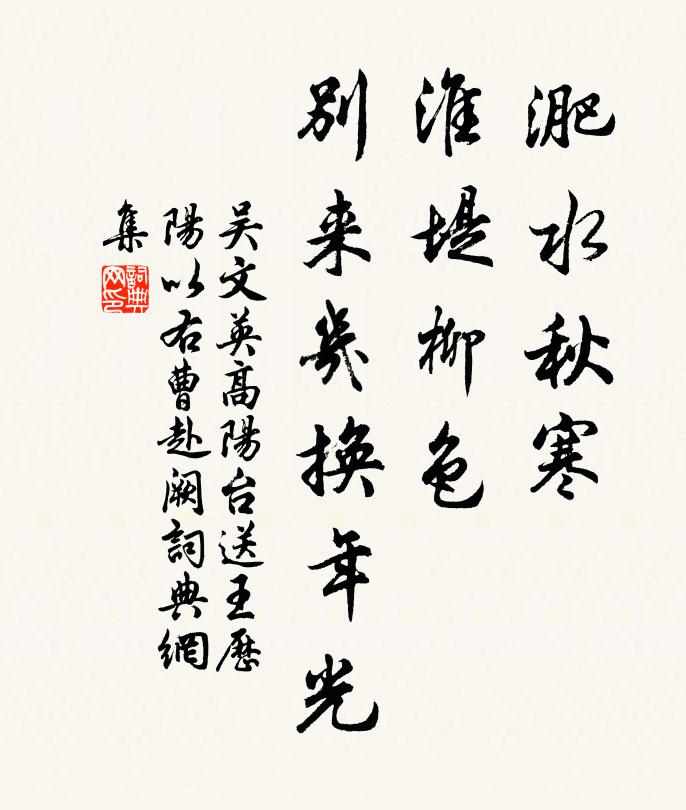 淝水秋寒
淮堤柳色
別来幾換年光
吴文英高陽台送王歷
陽以右曹赴阙詞典網
集
詞典
网印